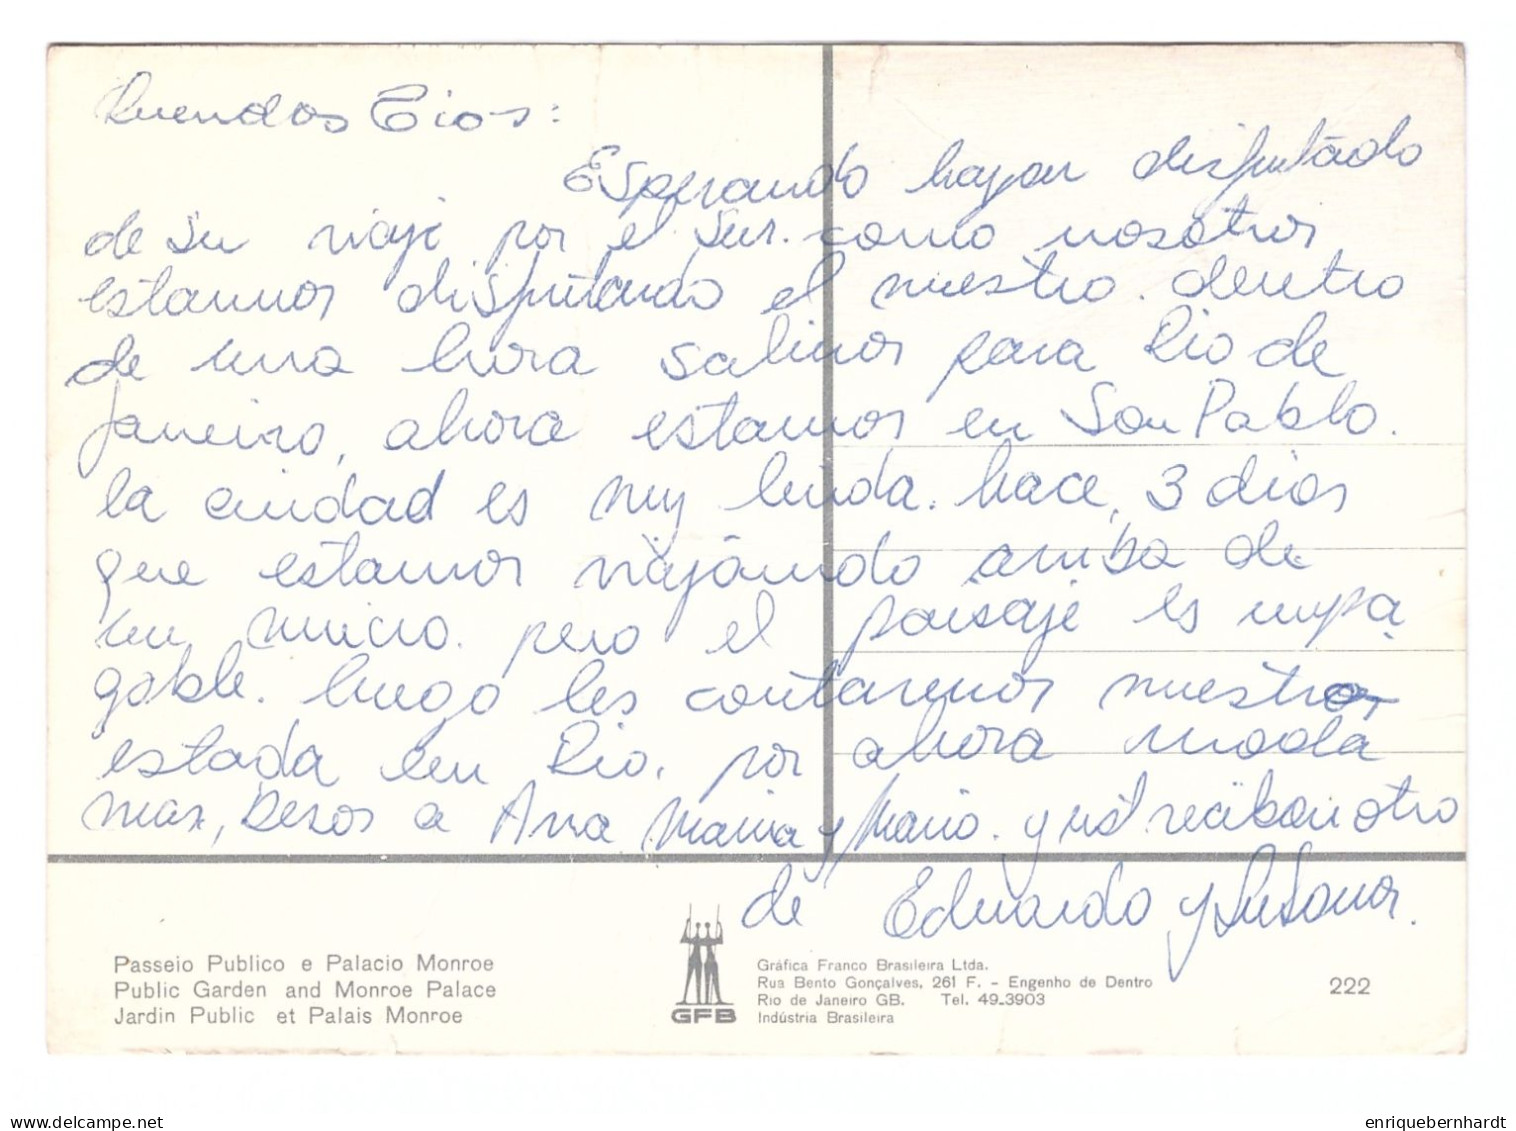 Queridos Tios:
Esperando hayan disfrutado
de su viaje por el Sur. como nosotros
estamos disfrutando el nuestro. dentro
de una hora salimos para Rio de
Janeiro, ahora estamos en San Pablo.
la ciudad es muy linda. hace, 3 dias
que estamos viajando arriba de
un micro. pero el paisaje es impa
gable. luego les contaremos nuestra
estada en Rio, por ahora nada
mas, besos a Ana Maria y Mario. y uds reciban otro
de Eduardo y Susana.
Passeio Publico e Palacio Monroe
Public Garden and Monroe Palace
Jardin Public et Palais Monroe
GFB
Gráfica Franco Brasileira Ltda.
Rua Bento Gonçalves, 261 F. - Engenho de Dentro
Rio de Janeiro GB. Tel. 49-3903
Indústria Brasileira
222
delcampe.net
enriquebernhardt